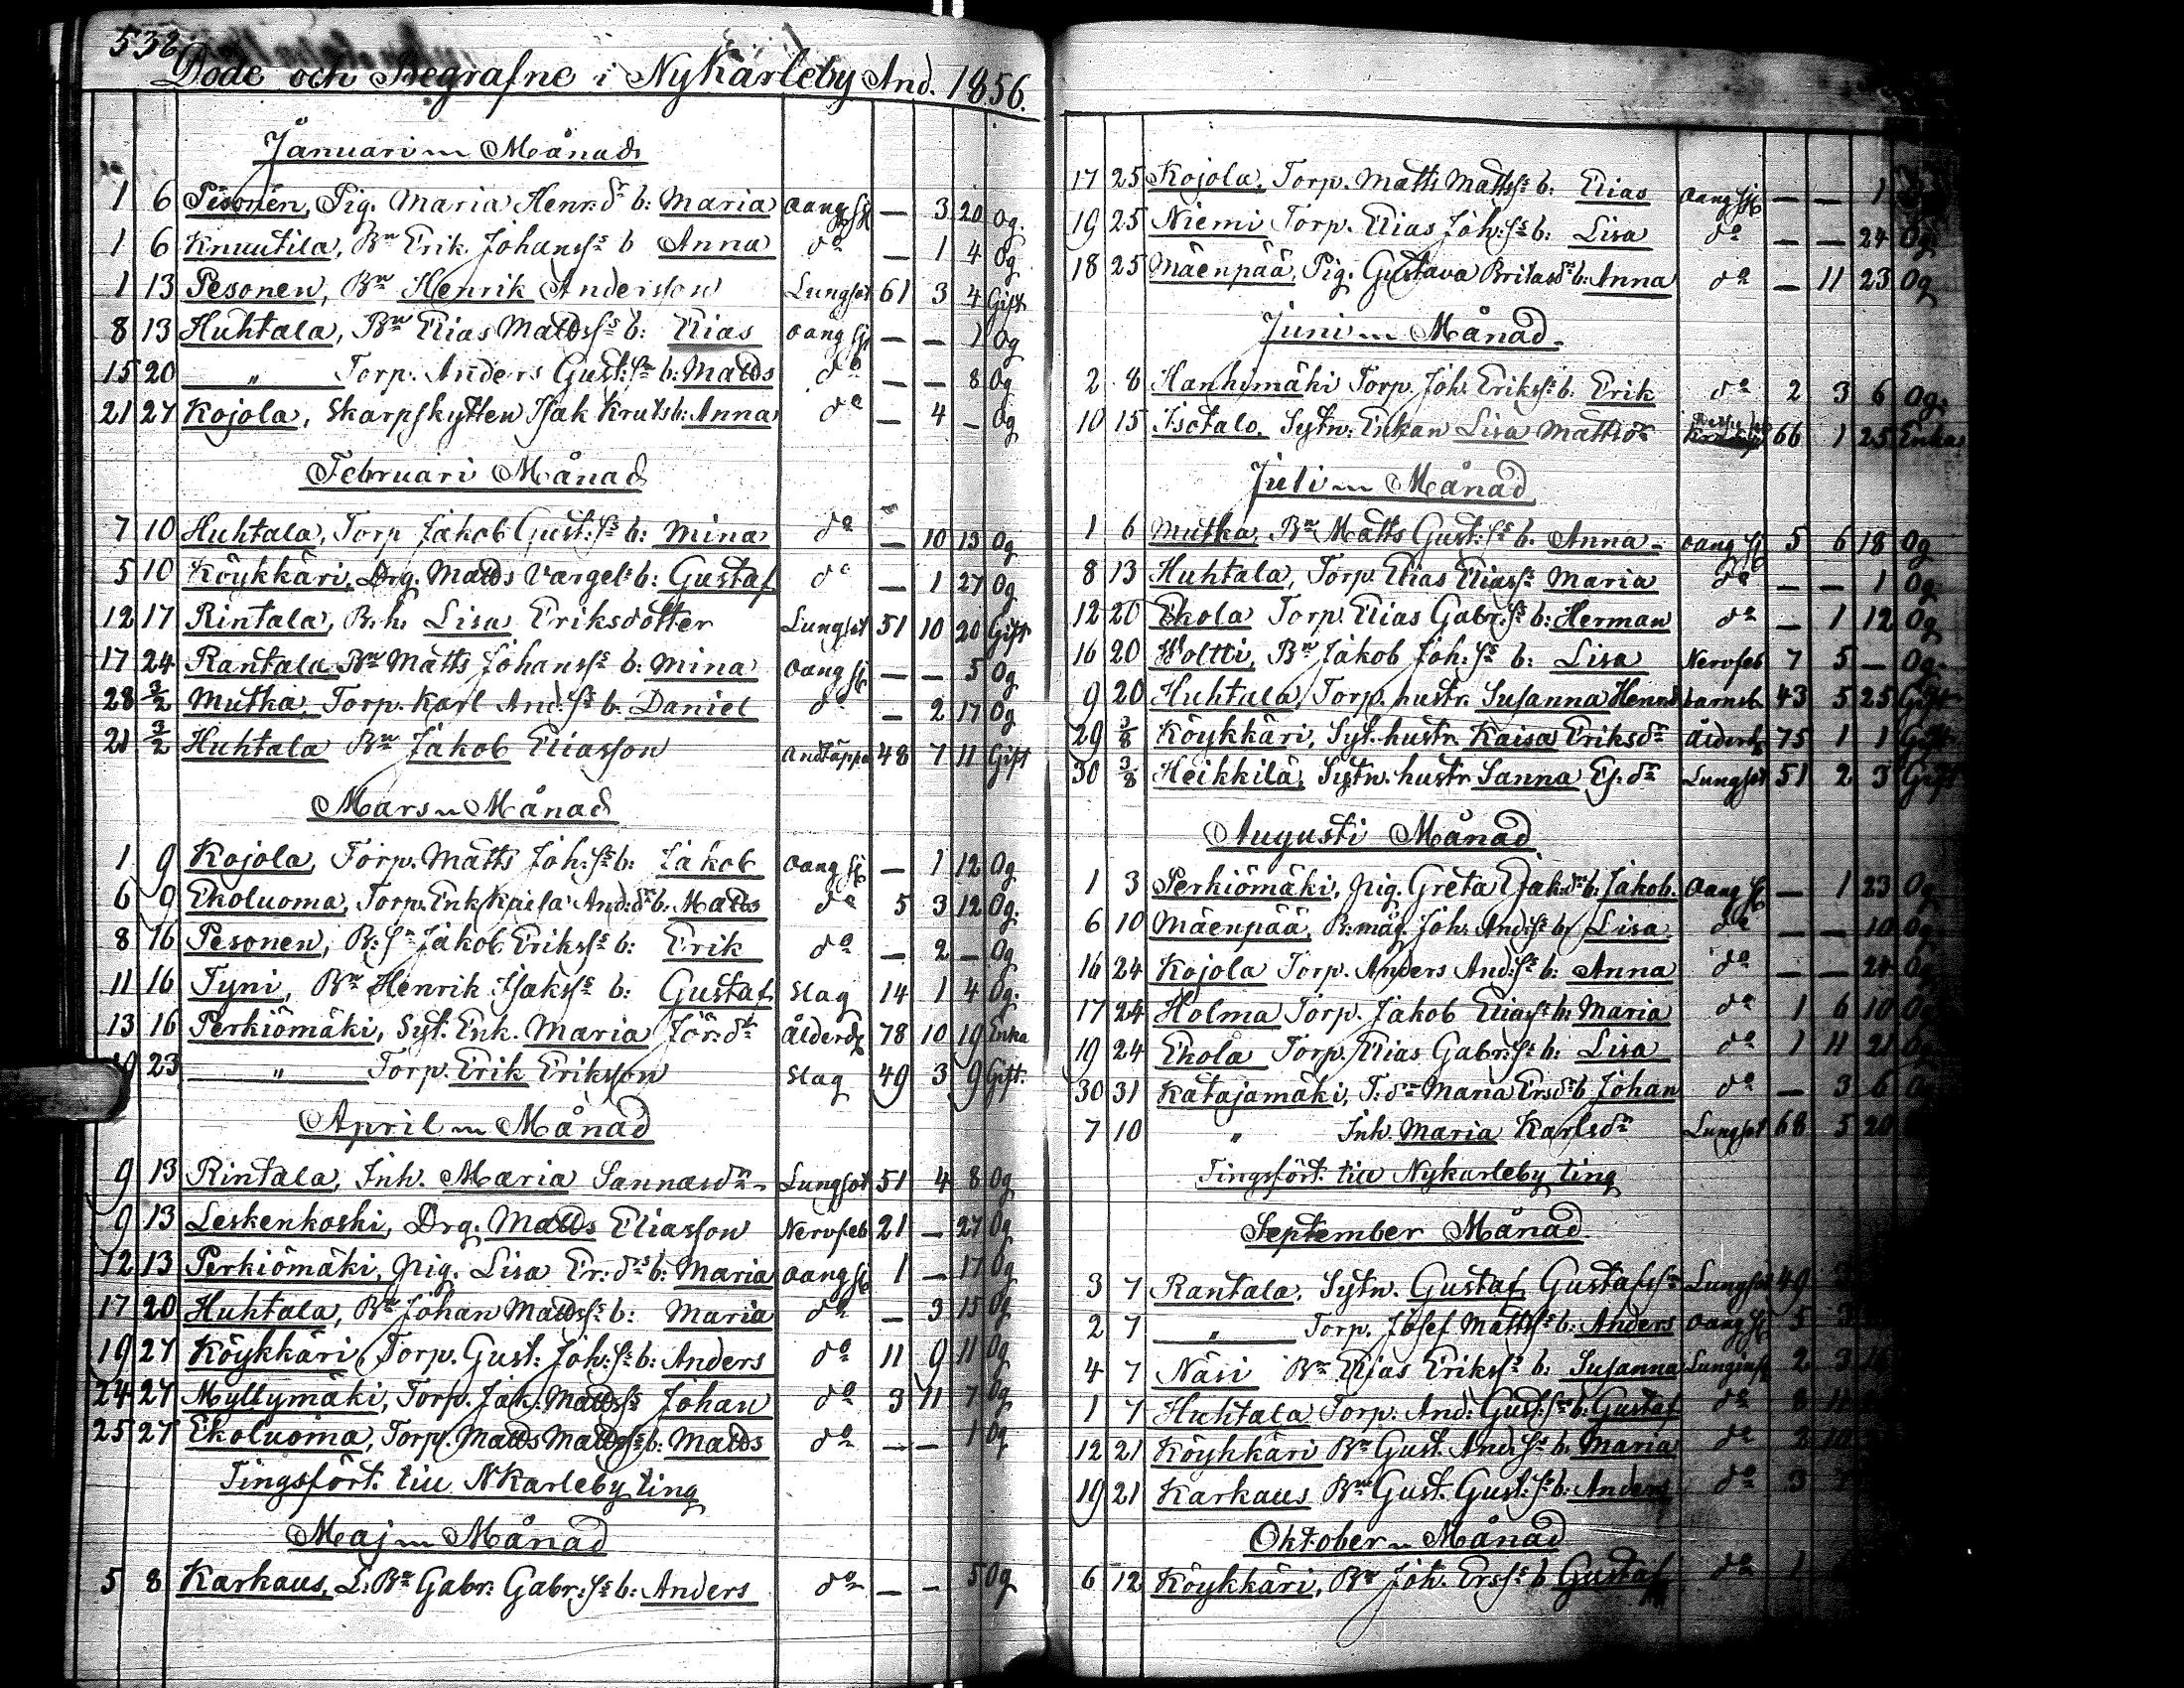 538
Döde och Begrafne i NyKarleby And. 1856.
Januari Månad
1 6 Pesonen, Pig. Maria Henr:dr b: Maria Oang Sj — 3 20 Og.
1 6 Knuutila, Bn Erik Johanss:s b Anna do — 1 4 Og
1 13 Pesonen, Bn Henrik Andersson Lungsot 61 3 4 Gift
8 13 Huhtala, Bn Elias Matds:s b: Elias Oang Sj — — 1 Og
15 20 " Torp. Anders Gust:sns b: Matds do — — 8 Og
21 27 Kojola, Skarpskytten Isak Kruts b: Anna do — 4 — Og
Februari Månad
7 10 Huhtala, Torp Jakob Gust:s b: Mina do — 10 13 Og
5 10 Köykkäri, Drg. Matds Vargels b: Gustaf do — 1 27 Og
12 17 Rintala, B.h. Lisa Eriksdotter Lungsot 51 10 20 Gift
17 24 Rantala Bn Matts Johanss:s b: Mina Oang Sj — — 5 Og
28 3/2 Mutka, Torp. Karl And:s b. Daniel do — 2 17 Og
21 3/2 Huhtala Bn Jakob Eliasson Andtäppa 48 7 11 Gift
Mars Månad
1 9 Kojola, Torp. Matts Joh:s b: Jakob Oang Sj — 1 12 Og
6 9 Ekoluoma, Torp. Enk Kaisa And:dr b. Matds do 5 3 12 Og.
8 16 Pesonen, B:sn Jakob Erikss:s b: Erik do — 2 — Og
11 16 Tyni, Bn Henrik Isakss:s b: Gustaf Slag 14 1 4 Og.
13 16 Perkiömäki, Syt. Enk. Maria Jör:dr Ålderd 78 10 19 Enka
19 23 " Torp. Erik Eriksson Slag 49 3 9 Gift.
April Månad
9 13 Rintala, Inh. Maria Sannasdr Lungsot 51 4 8 Og
9 13 Leskenkoski, Drg. Matds Eliasson Nervfeb 21 — 27 Og
12 13 Perkiömäki, pig. Lisa Er:drs b: Maria Oang Sj 1 — 17 Og
17 20 Huhtala, Bn Johan Matds:s b: Maria do — 3 15 Og
19 27 Köykkäri, Torp. Gust: Joh:s b: Anders do 11 9 11 Og
24 27 Myllymäki, Torp. Jak: Matds:s Johan do 3 11 7 Og
25 27 Ekoluoma, Torp. Matds Matds:s b: Matds do — — 1 Og
Tingsfört. till NKarleby ting
Maj Månad
5 8 Karkaus, L. Bn Gabr: Gabr:s b: Anders do — — 5 Og
17 25 Kojola, Torp. Matts Mattss:s b: Elias Oang Sj — — 1
19 25 Niemi Torp. Elias Joh:s b: Lisa do — — 24 Og
18 25 Mäenpää, Pig. Gustava Britasdr b: Anna do — 11 23 Og
Juni Månad
2 8 Hanhimäki Torp. Joh. Erikss:s b: Erik do 2 3 6 Og.
10 15 Isotalo, Sytn. Enkan Lisa Mattsdr 66 1 25 Enka
Juli Månad
1 6 Mutka Bn Matts Gust:s b. Anna Oang Sj 5 6 18 Og
8 13 Huhtala, Torp. Elias Elias:s Maria do — — 1 Og
12 20 Ekola Torp. Elias Gabr:s b: Herman do — 1 12 Og
16 20 Woltti, Bn Jakob Joh:s b: Lisa Nervfeb 7 5 — Og.
9 20 Huhtala, Torp. hustr. Susanna Henrd barnsb. 43 5 25 Gift
29 3/8 Köykkäri, Syt. hustr. Kaisa Eriksdr Ålderd 75 1 1 Gift
30 3/8 Heikkilä, Sytn. hustr Sanna Es.dr Lungsot 51 2 3 Gift
Augusti Månad
1 3 Perkiömäki, pig. Greta E Jak:dr b: Jakob. Oang Sj — 1 23 Og
6 10 Mäenpää, B:måg. Joh. And:s b: Lisa do — — 10 Og
16 24 Kojola Torp. Anders And:s b: Anna do — — 24 Og
17 24 Holma Torp. Jakob Elias:s b: Maria do 1 6 10 Og
19 24 Ekola Torp. Elias Gabr:s b: Lisa do 1 11 21 Og
30 31 Katajamäki, T:dr Maria Ersdr b Johan do — 3 6 Og
7 10 " Inh. Maria Karlsdr Lungsot 68 5 20
Tingsfört. till Nykarleby ting
September Månad
3 7 Rantala, Sytn. Gustaf Gustafss:n Lungsot 49
2 7 " Torp. Josef Matts:s b: Anders Oang Sj 5 3
4 7 Näsi Bn Elias Erikss:s b: Susanna Lunginf 2 3
1 7 Huhtala Torp: And: Gust:sns b: Gustaf do 8 11
12 21 Köykkäri Bn Gust. And:s b: Maria do 2 10
19 21 Karkaus Bn Gust. Gust:s b: Anders do 3
Oktober Månad
6 12 Köykkäri, Bn Joh. Erss:s b Gustaf do 1